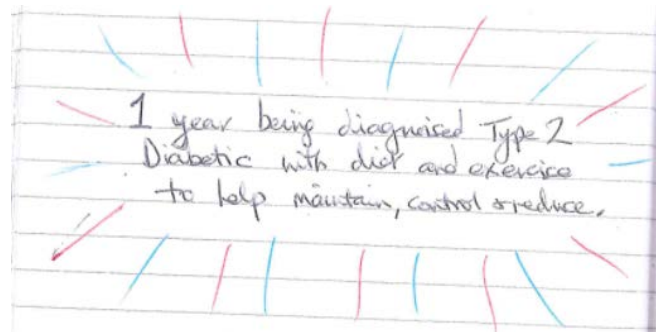 1 year being diagnoised Type 2
Diabetic with diet and exercice
to help maintain, control & reduce.